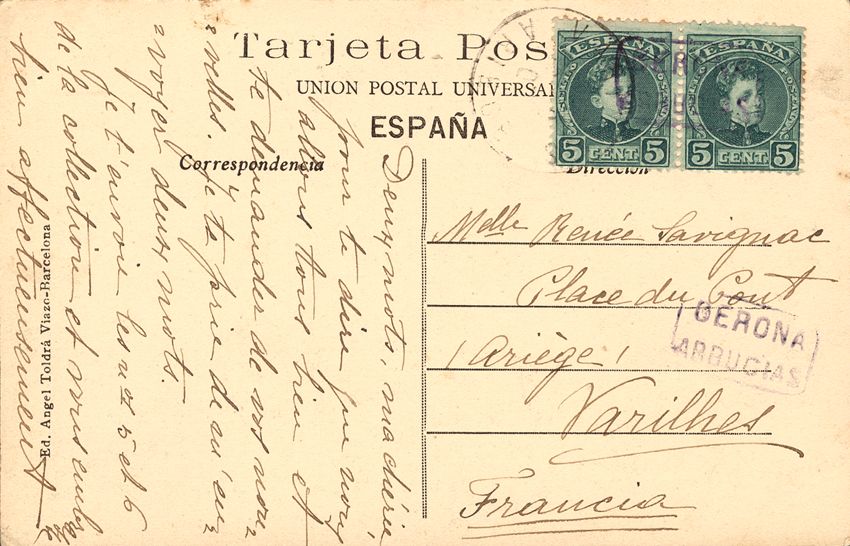 Tarjeta Pos
UNION POSTAL UNIVERSA
ESPAÑA
Correspondencia
Dirección
ESPAÑA
5 CENT 5
ESPAÑA
5 CENT 5
Deux mots, ma chérie
pour te dire que nous
allons tous bien et
te demander de vos nou=
=velles. Je te prie de m'en=
=voyer deux mots.
Je t'envoie les nos 5 et 6
de la collection et vous embr
bien affectueusement
Melle Renée Savignac
Place du Pont
(Ariège)
Varilhes
Francia
GERONA
ARBUCIAS
Ed. Angel Toldrá Viazo-Barcelona